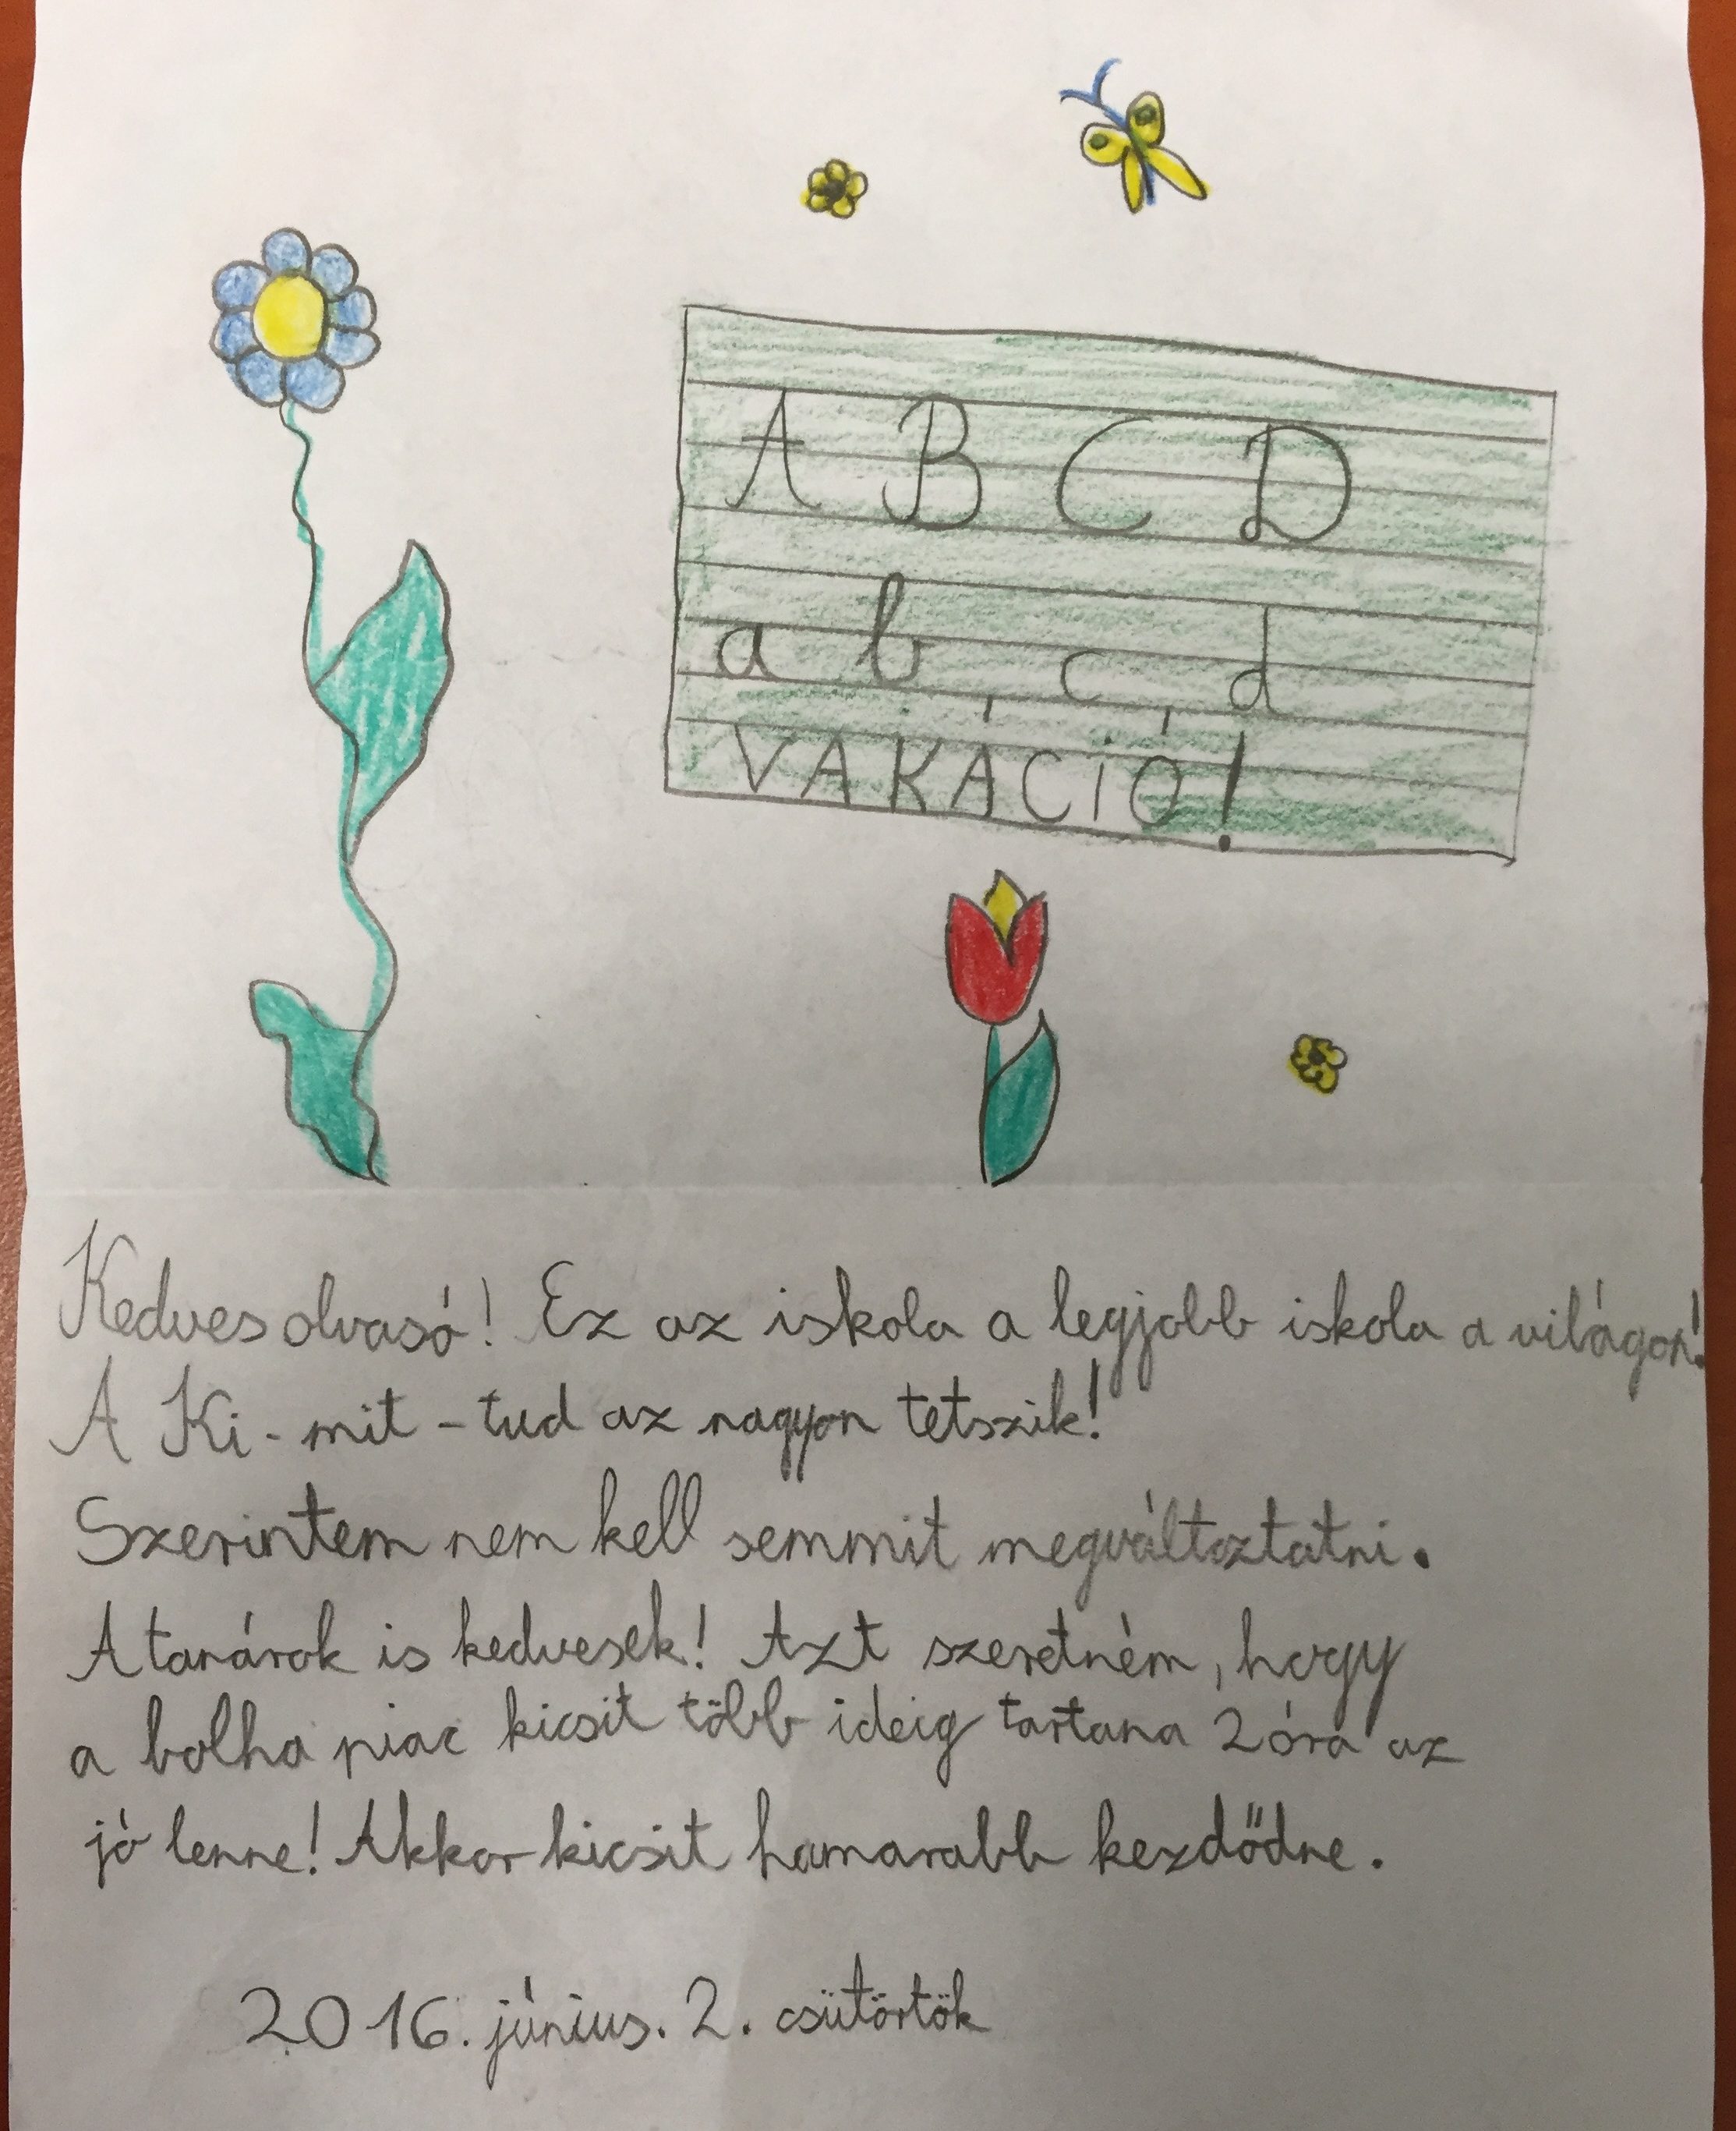 A B C D
a b c d
VAKÁCIÓ!
Kedves olvasó! Ez az iskola a legjobb iskola a világon!
A Ki-mit-tud az nagyon tetszik!
Szerintem nem kell semmit megváltoztatni.
A tanárok is kedvesek! Azt szeretném, hogy
a bolha piac kicsit több ideig tartana 2 óra az
jó lenne! Akkor kicsit hamarabb kezdődne.
2016. június. 2. csütörtök